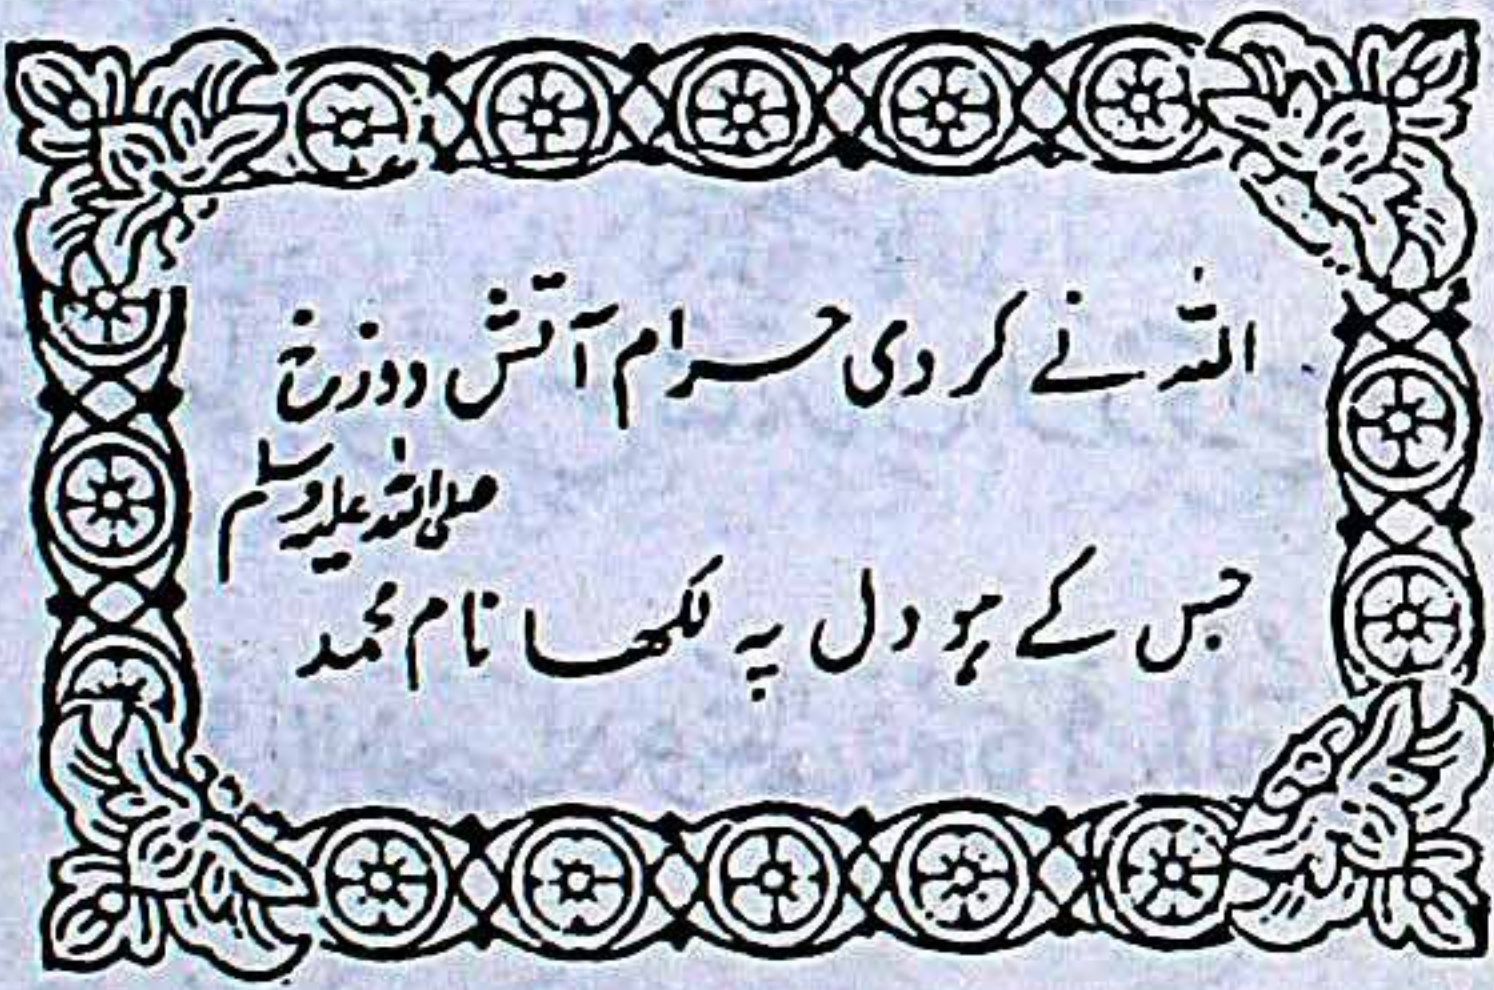 اللہ نے کر دی حرام آتش دوزخ
صلی اللہ علیہ وسلم
جس کے ہو دل پہ لکھا نام محمد